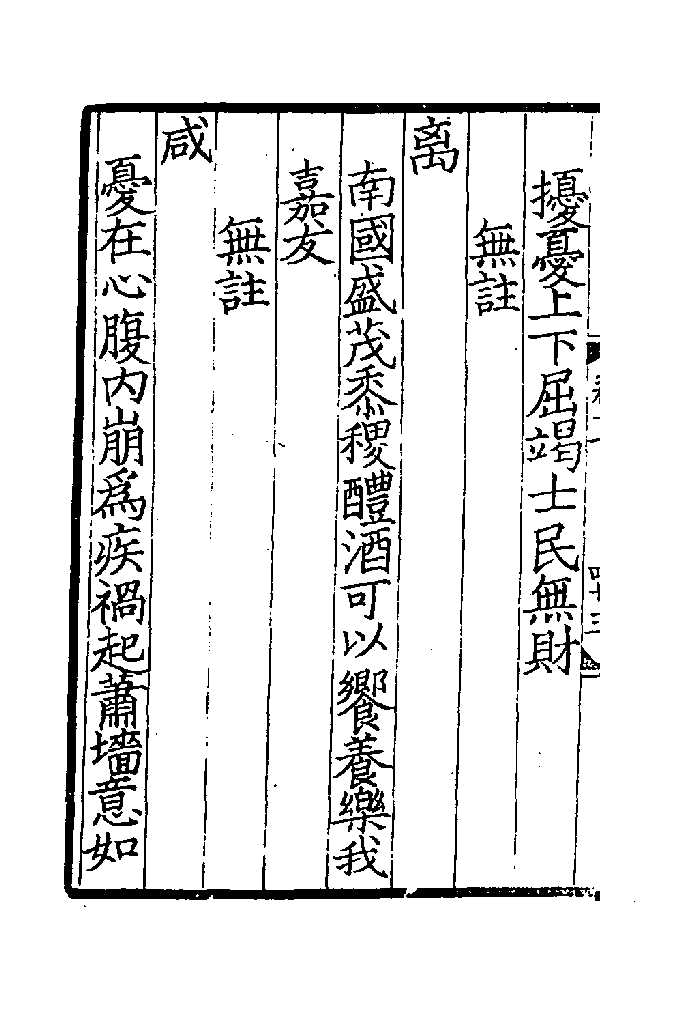 擾憂上下屈竭士民無財
無註
离
南國盛茂黍稷醴酒可以饗養樂我
嘉友
無註
咸
憂在心腹内崩為疾禍起蕭墻意如